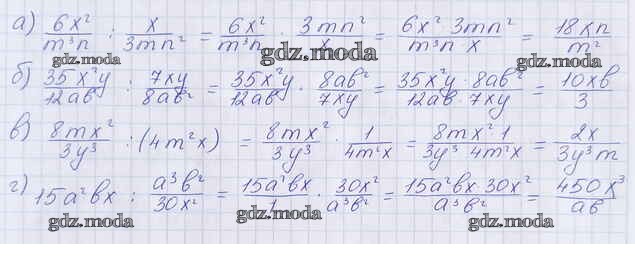 а) 6x²/m³n : x/3mn² = 6x²/m³n · 3mn²/x = 6x² 3mn²/m³n x = 18xn/m²
gdz.moda gdz.moda gdz.moda
б) 35x²y/12ab : 7xy/8ab² = 35x²y/12ab · 8ab²/7xy = 35x²y · 8ab²/12ab · 7xy = 10xb/3
в) 8mx²/3y³ : (4m²x) = 8mx²/3y³ · 1/4m²x = 8mx² 1/3y³ 4m²x = 2x/3y³m
г) 15a²bx : a³b²/30x² = 15a²bx/1 · 30x²/a³b² = 15a²bx 30x²/a³b² = 450x³/ab
gdz.moda gdz.moda gdz.moda